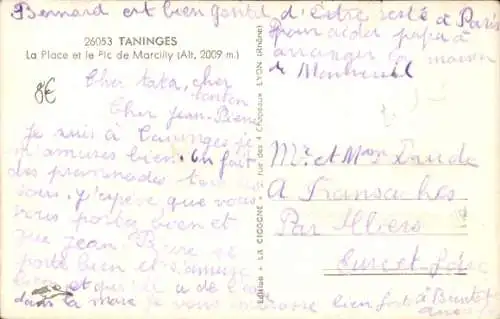 Bernard est bien gentil d'être resté à Paris
pour aider papa à
arranger la maison
de Montreuil
26053 TANINGES
La Place et le Pic de Marcilly (Alt. 2009 m.)
8€
Cher tata, cher
tonton
Cher Jean-Pierre
Je suis à Taninges je
m'amuse bien. On fait
des promenades tous les
jours. J'espère que vous
vous portez bien et
que Jean-Pierre se
porte bien et s'amuse
bien et que a de l'eau
dans la mare je vous embrasse bien fort
Edition " LA CIGOGNE " rue des 4 Chapeaux LYON (Rhône)
Mr et Mme
A Fransaches
Par Illiers
Eure et Loir